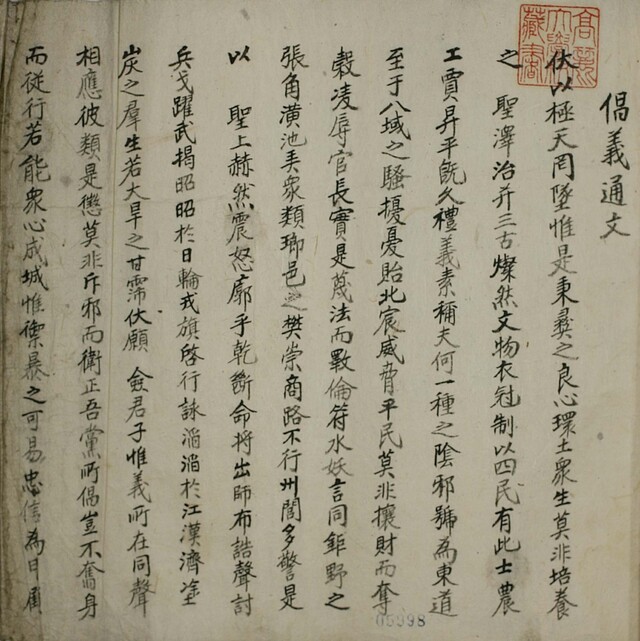 倡義通文
伏以極天罔墜惟是秉彝之良心環土衆生莫非培養
之　聖澤治幷三古燦然文物衣冠制以四民有此士農
工賈昇平旣久禮義素稱夫何一種之陰邪號為東道
至于八域之騷擾憂貽北宸威脅平民莫非攘財而奪
穀凌辱官長實是蔑法而斁倫符水妖言同鉅野之
張角潢池弄衆類瑯邑之樊崇商路不行州閭多警是
以　聖上赫然震怒廓乎乾斷命將出師布誥聲討
兵戈躍武揭昭昭於日輪戎旗啓行詠滔滔於江漢濟塗
炭之羣生若大旱之甘霈伏願　僉君子惟義所在同聲
相應彼類是懲莫非斥邪而衛正吾黨所倡豈不奮身
而從行若能衆心成城惟禦暴之可易忠信為甲胄
高麗大學校藏書
05998